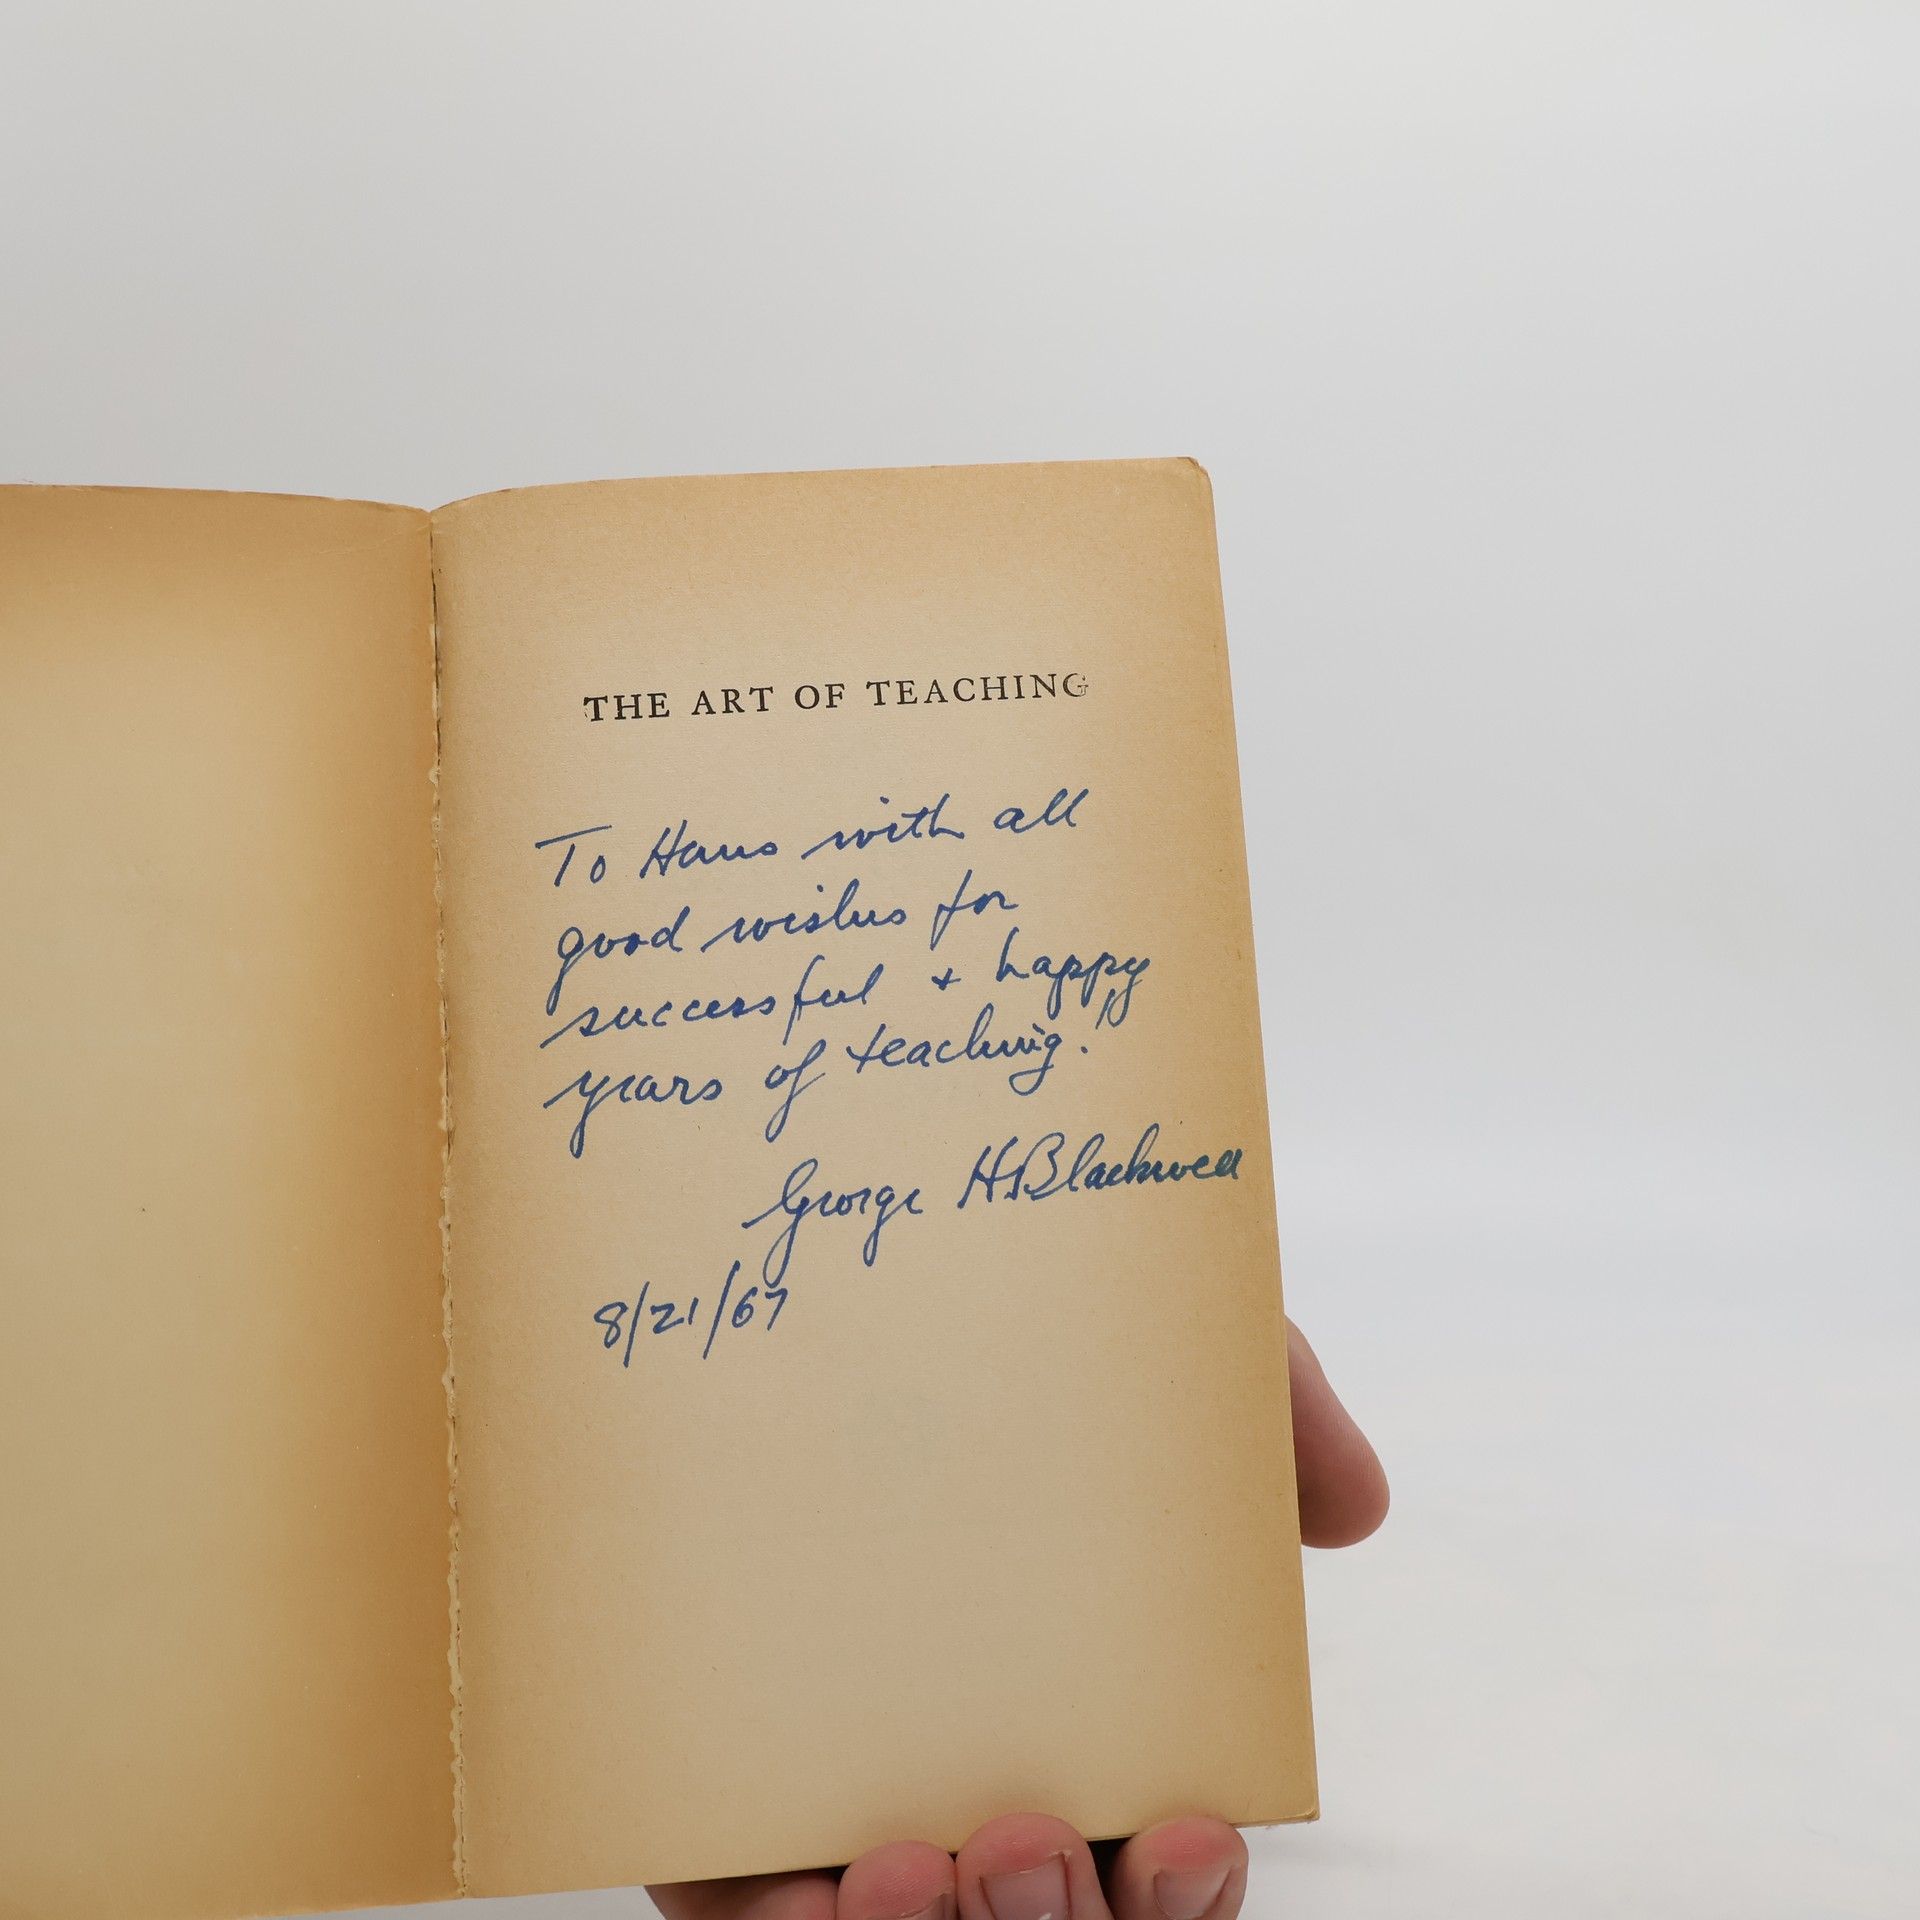 THE ART OF TEACHING
To Hans with all
good wishes for
successful + happy
years of teaching!
George H Blackwell
8/21/67